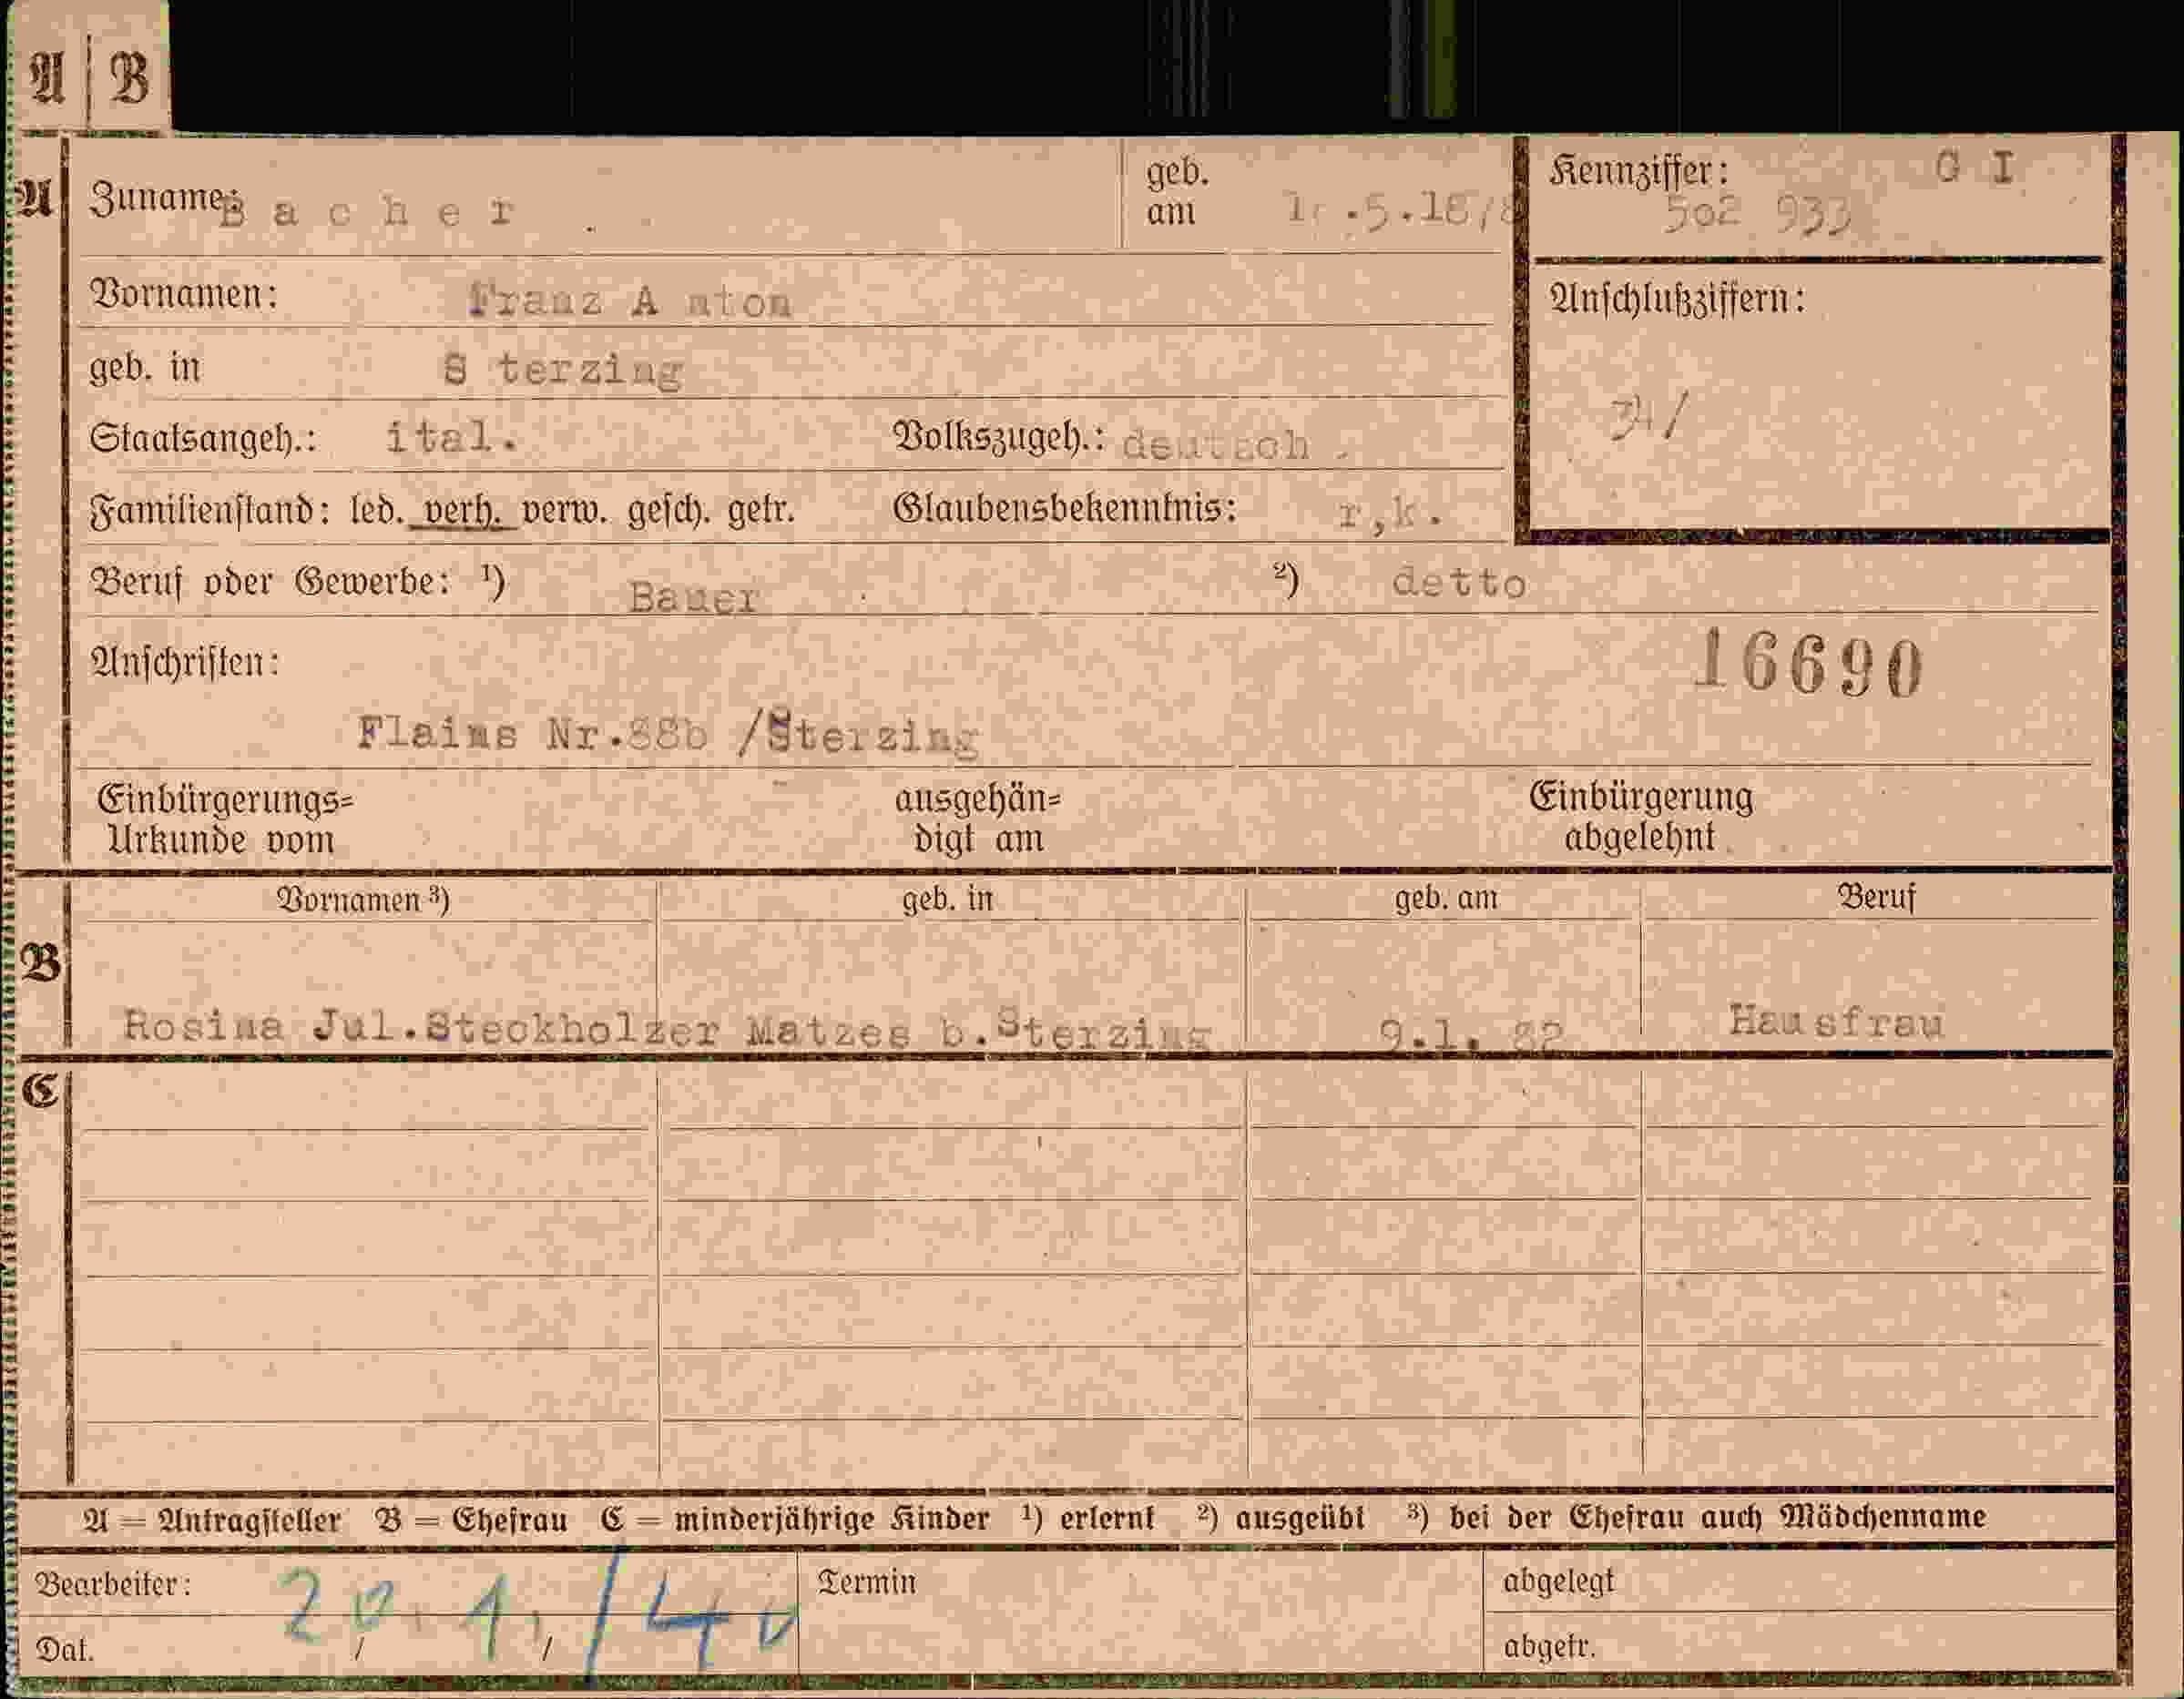 A | B
A Zuname: Bacher geb. am .5.18 Kennziffer: G I
502 933
Vornamen: Franz A nton Anschlußziffern:
geb. in S terzing
34/
Staatsangeh.: ital. Volkszugeh.: deutsch .
Familienstand: led. verh. verw. gesch. getr. Glaubensbekenntnis: r,k.
Beruf oder Gewerbe: ¹) Bauer ²) detto
Anschriften: 16690
Flains Nr.88b /Sterzing
Einbürgerungs= Urkunde vom ausgehän= digt am Einbürgerung abgelehnt
Vornamen ³) geb. in geb. am Beruf
B
Rosina Jul.Steckholzer Matzes b.Sterzing 9.1. 82 Hausfrau
C
A = Antragsteller B = Ehefrau C = minderjährige Kinder ¹) erlernt ²) ausgeübt ³) bei der Ehefrau auch Mädchenname
Bearbeiter: Termin abgelegt
20.1./40
Dat. / / abgetr.